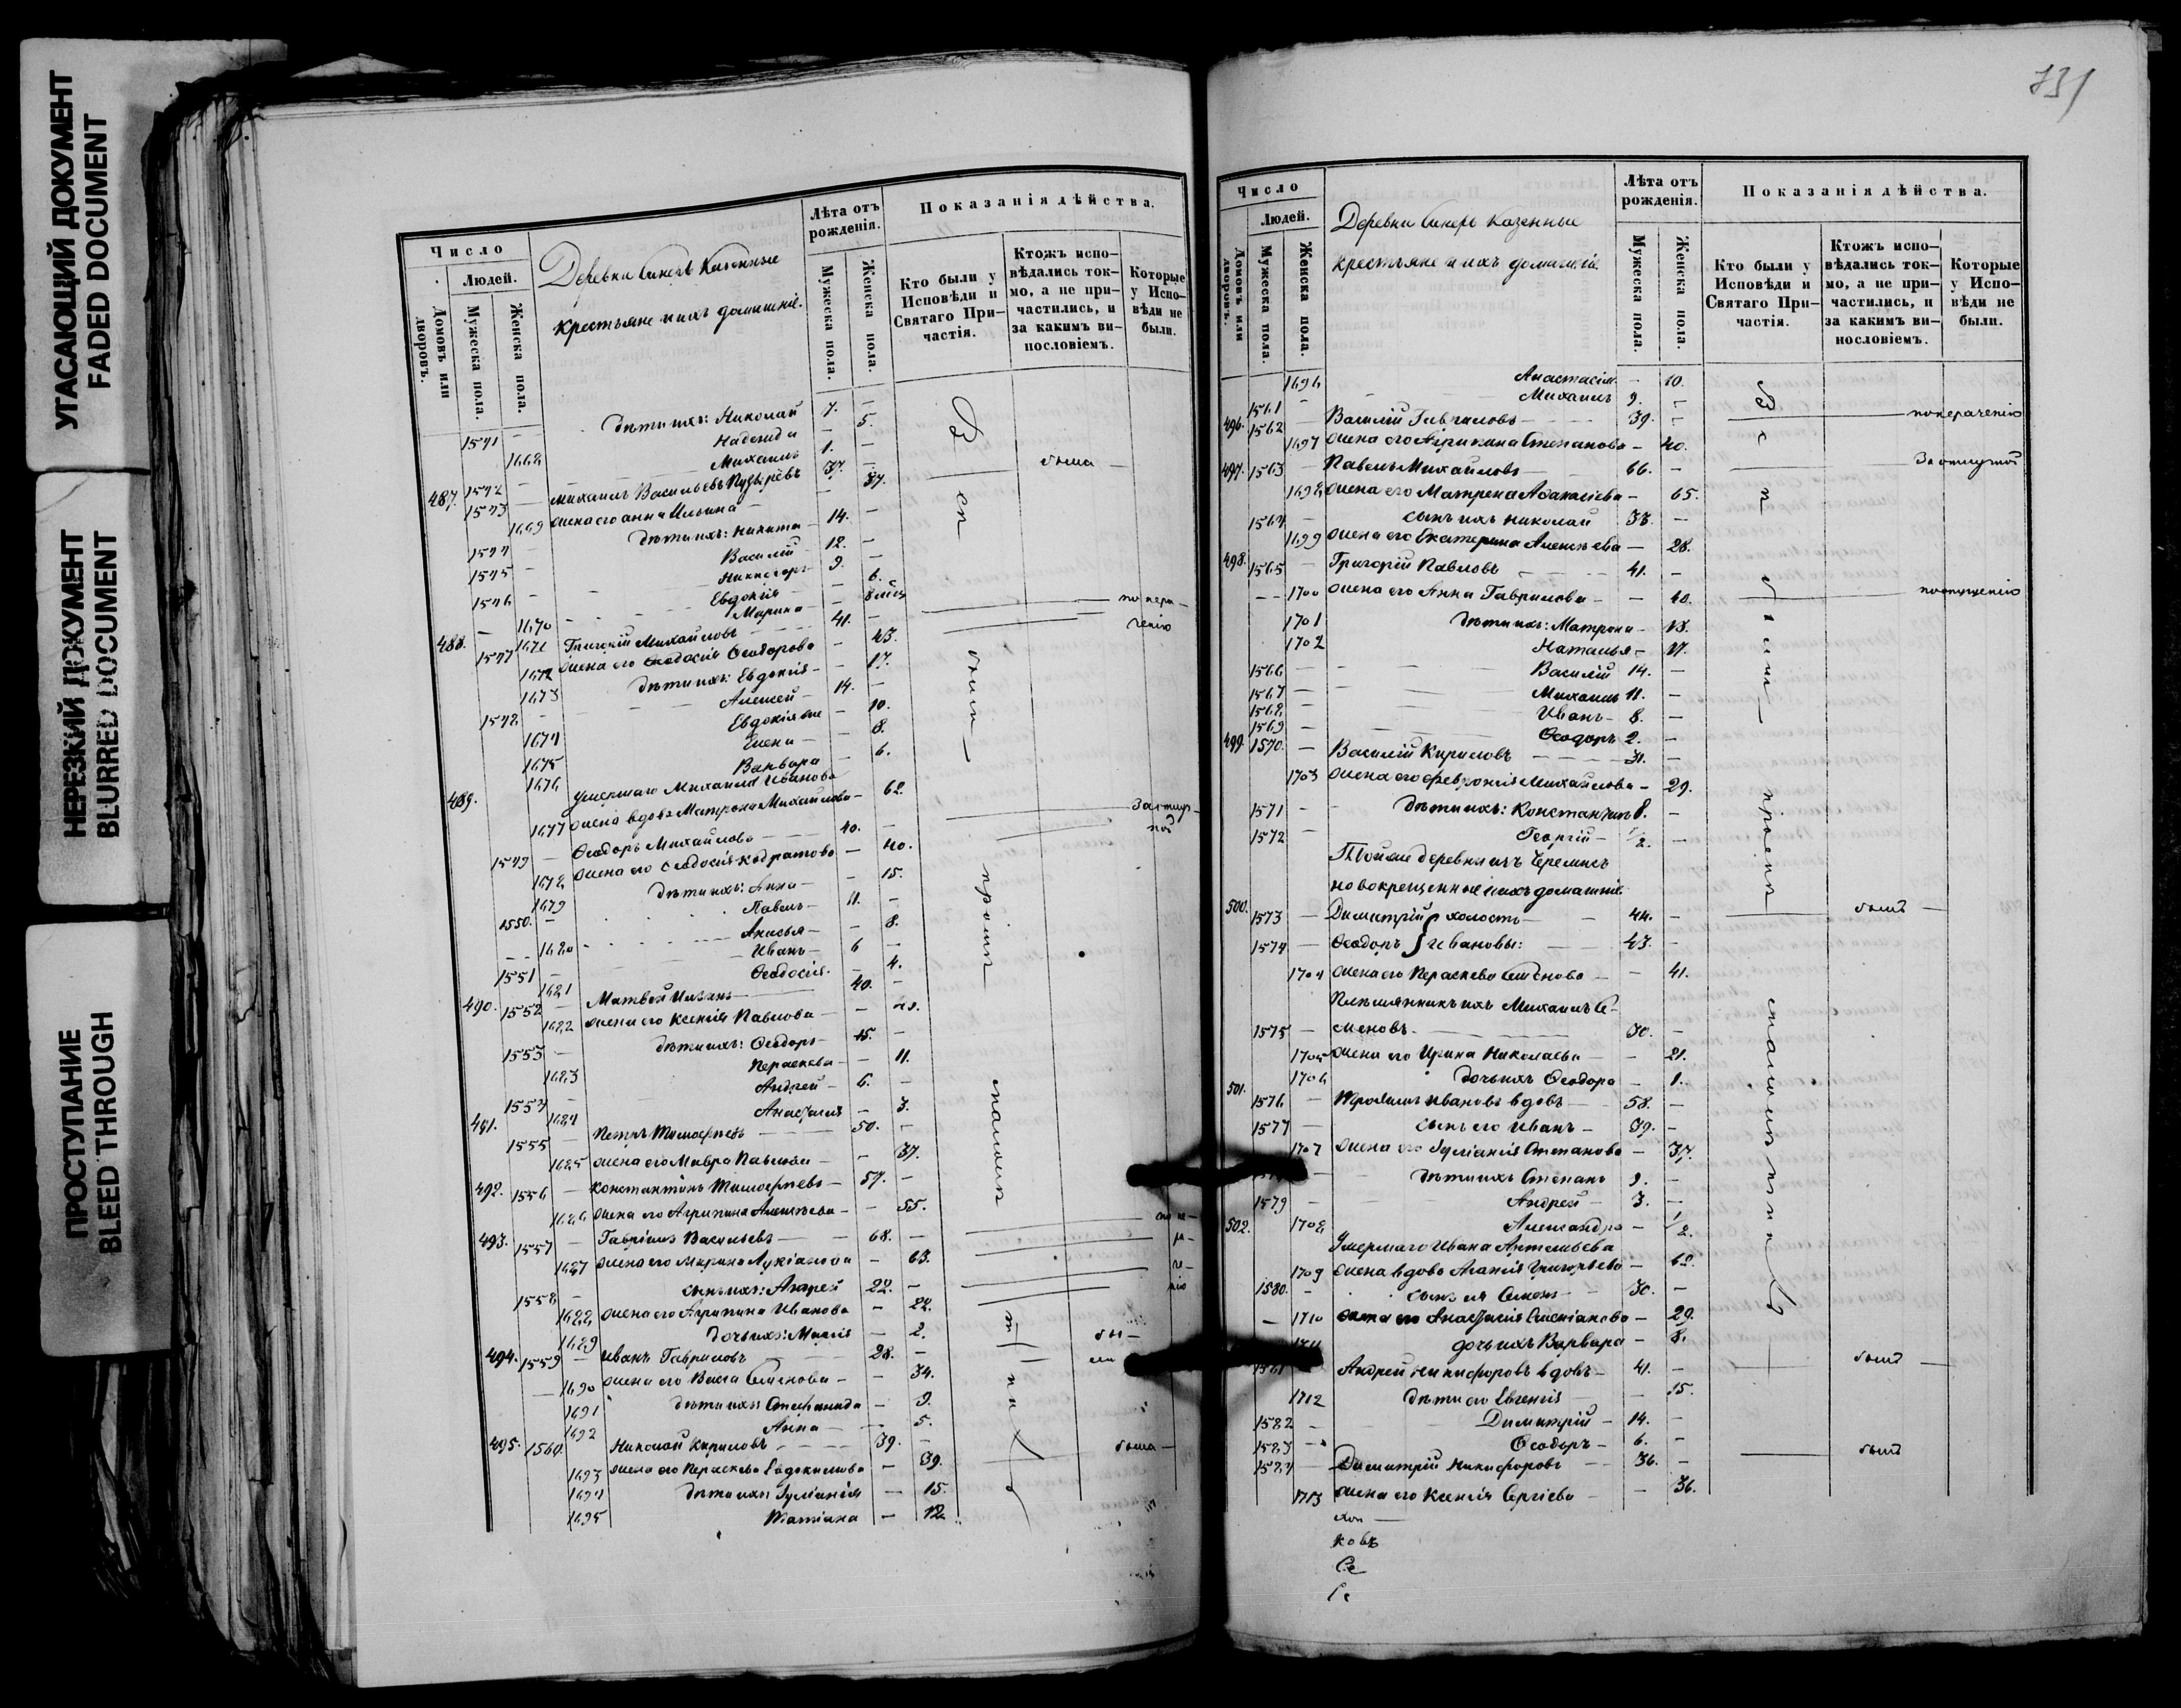 УГАСАЮЩИЙ ДОКУМЕНТ
FADED DOCUMENT
НЕРЕЗКИЙ ДОКУМЕНТ
BLURRED DOCUMENT
ПРОСТУПАНИЕ
BLEED THROUGH
Число
Людей.
Домовъ или дворовъ.
Мужеска пола.
Женска пола.
Деревни
крестьяне и ихъ домашніе.
Лѣта отъ рожденія.
Мужеска пола.
Женска пола.
Показанія дѣйства.
Кто были у Исповѣди и Святаго При-частія.
Ктожъ испо-вѣдались ток-мо, а не при-частились, и за какимъ ви-нословіемъ.
Которые у Испо-вѣди не были.
1541 – дѣти ихъ: Николай 7. –
1668 Надежда – 5.
1542 – Михаилъ 1. –
487. 1543 – Михаилъ Васильевъ Пузыревъ 37. – была –
1669 жена его Анна Ильина – 37.
1544 – дѣти ихъ: Никита 14. –
1545 – Василій 12. –
1546 – 9. –
1670 Евдокія – 6.
1671 Марина –
488. 1547 Григорій Михайловъ 41. –
1672 жена его Ѳеодосія Ѳеодорова – 43.
1673 дѣти ихъ: Евдокія – 17.
1548 – Алексей 14. –
1674 Евдокія – 10.
1675 Елена – 8.
1676 Варвара – 6.
489. умершаго Михаила Иванова
1677 жена вдова Матрона Михайлова – 62.
1549 – Ѳеодоръ Михайловъ 40. –
1678 жена его Ѳеодосія – 40.
1679 дѣти ихъ: Анна – 15.
1550. – Павелъ 11. –
1680 Анисья – 8.
1551 – Иванъ 6 –
1681 Ѳеодосія – 4.
490. 1552 – Матвей 40. –
1682 жена его Ксенія Павлова –
1553 – дѣти ихъ: Ѳеодоръ 15. –
1683 Параскева – 11.
1554 – Андрей 6. –
1684 Анастасія – 3.
491. 1555 – Петръ Тимоѳеевъ 50. –
1685 жена его Мавра Павлова – 37.
492. 1556 – Константинъ Тимоѳеевъ 57. –
1686 жена его Агрипина Алексѣева – 55.
493. 1557 – Гавріилъ Васильевъ 68. –
1687 жена его Марина Лукіанова – 63.
1558 – сынъ ихъ: Андрей 22. –
1688 жена его Агрипина Иванова – 22.
1689 дочь ихъ: Марія – 2.
494. 1559 – Иванъ Гавриловъ 28. –
1690 жена его Васса Семенова – 34.
1691 дѣти ихъ: Степанида – 9.
1692 Анна – 5.
495. 1560. Николай Кириловъ 39. – была –
1693 жена его Параскева Евдокимова – 39.
1694 дѣти ихъ: Іуліанія – 15.
1695 Татіана – 12.
731
Число
Людей.
Домовъ или дворовъ.
Мужеска пола.
Женска пола.
Деревни казенные
крестьяне и ихъ домашніе.
Лѣта отъ рожденія.
Мужеска пола.
Женска пола.
Показанія дѣйства.
Кто были у Исповѣди и Святаго При-частія.
Ктожъ испо-вѣдались ток-мо, а не при-частились, и за какимъ ви-нословіемъ.
Которые у Испо-вѣди не были.
1696 Анастасія – 10.
1561 – Михаилъ 9. –
496. 1562 Василій Гавриловъ 39. –
1697 жена его Агрипина Степанова – 40.
497. 1563 – Павелъ Михайловъ 66. – За отлучкой
1698 жена его Матрена Аѳанасіева – 65.
1564 – сынъ ихъ Николай 33. –
1699 жена его Екатерина Алексѣева – 28.
498. 1565 – Григорій Павловъ 41. –
1700 жена его Анна Гаврилова – 40. по опущенію
1701 дѣти ихъ: Матрона –
1702 Наталья – 17.
1566 – Василій 14. –
1567 – Михаилъ 11. –
1568 – Иванъ 8. –
1569 – Ѳеодоръ 2. –
499. 1570. – Василій Кириловъ 31. –
1703 жена его Февронія Михайлова – 29.
1571 – дѣти ихъ: Константинъ 8. –
1572 – Георгій 1/2. –
Той же деревни изъ Черемисъ
новокрещенные и ихъ домашніе
500. 1573 – Димитрій холостъ 44. – былъ –
1574 – Ѳеодоръ Ивановы: 43. –
1704 жена его Параскева Семенова – 41.
Племянникъ ихъ Михаилъ Се-
1575 – меновъ 30. –
1705 жена его Ирина Николаева – 21.
1706 дочь ихъ Ѳеодора – 1.
501. 1576 – Трофимъ Ивановъ вдовъ 58. –
1577 – сынъ его Иванъ 39. –
1707 жена его Іуліанія Степанова – 37.
– дѣти ихъ Степанъ 9. –
1579 – Андрей 3. –
502. 1708 Александра – 1/2.
Умершаго Ивана Артемьева
1709 жена вдова Агаѳія Григорьева – 62.
1580. – сынъ ея Семенъ 30. –
1710 жена его Анастасія – 29.
дочь ихъ Варвара – 8.
Андрей Никифоровъ вдовъ 41. – былъ –
1712 дѣти его Евгенія – 15.
1582 – Димитрій 14. –
1583 – Ѳеодоръ 6. –
1584 Димитрій Никифоровъ 36. – былъ
1713 жена его Ксенія Сергіева – 36.
ковъ
Се